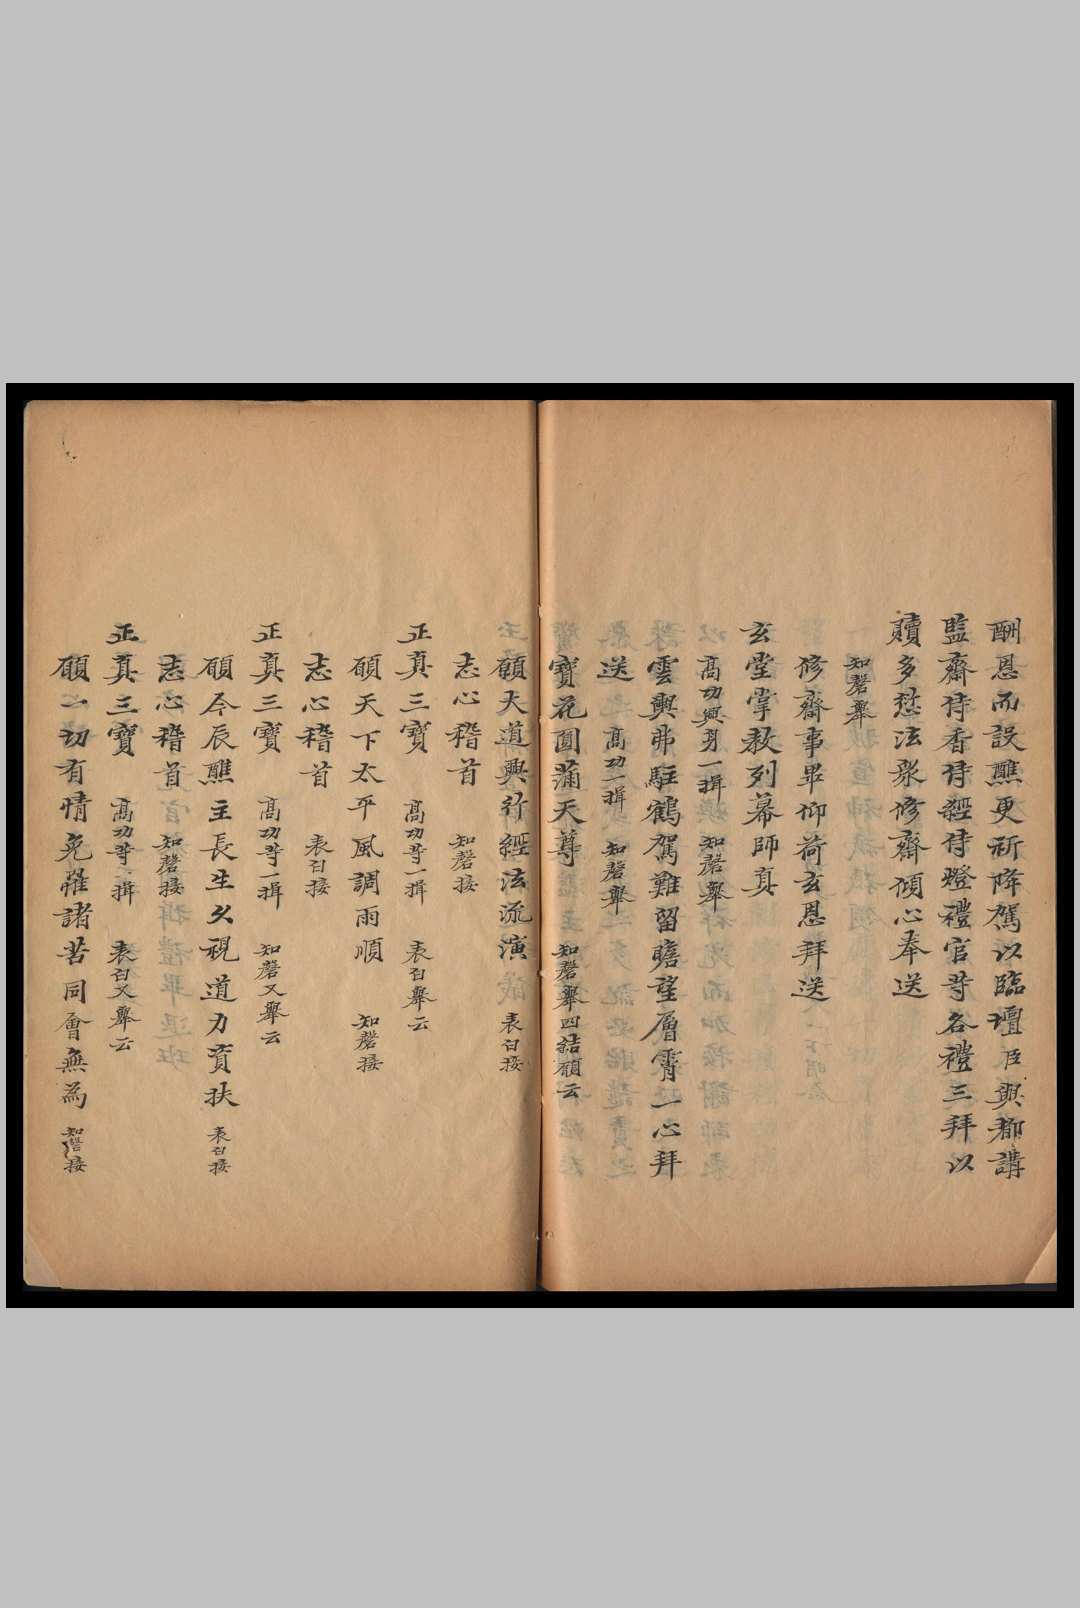 酬恩而設醮更祈降駕以臨壇臣與都講
監齋侍香侍經侍燈禮官等各禮三拜以
贖多愆法衆修齋傾心奉送
知磬舉
修齋事畢仰荷玄恩拜送
玄堂掌教列幕師真
高功興身一揖 知磬舉
雲輿弗駐鶴駕難留瞻望層霄一心拜
送 高功一揖 知磬舉
寶花圓蒲天尊 知磬舉四結願云
願大道興行經法流演 表白接
志心稽首 知磬接
正真三寶 高功等一揖 表白舉云
願天下太平風調雨順 知磬接
志心稽首 表白接
正真三寶 高功等一揖 知磬又舉云
願今辰醮主長生久視道力資扶 表白接
志心稽首 知磬接
正真三寶 高功等一揖 表白又舉云
願一切有情免罹諸苦同會無為 知磬接